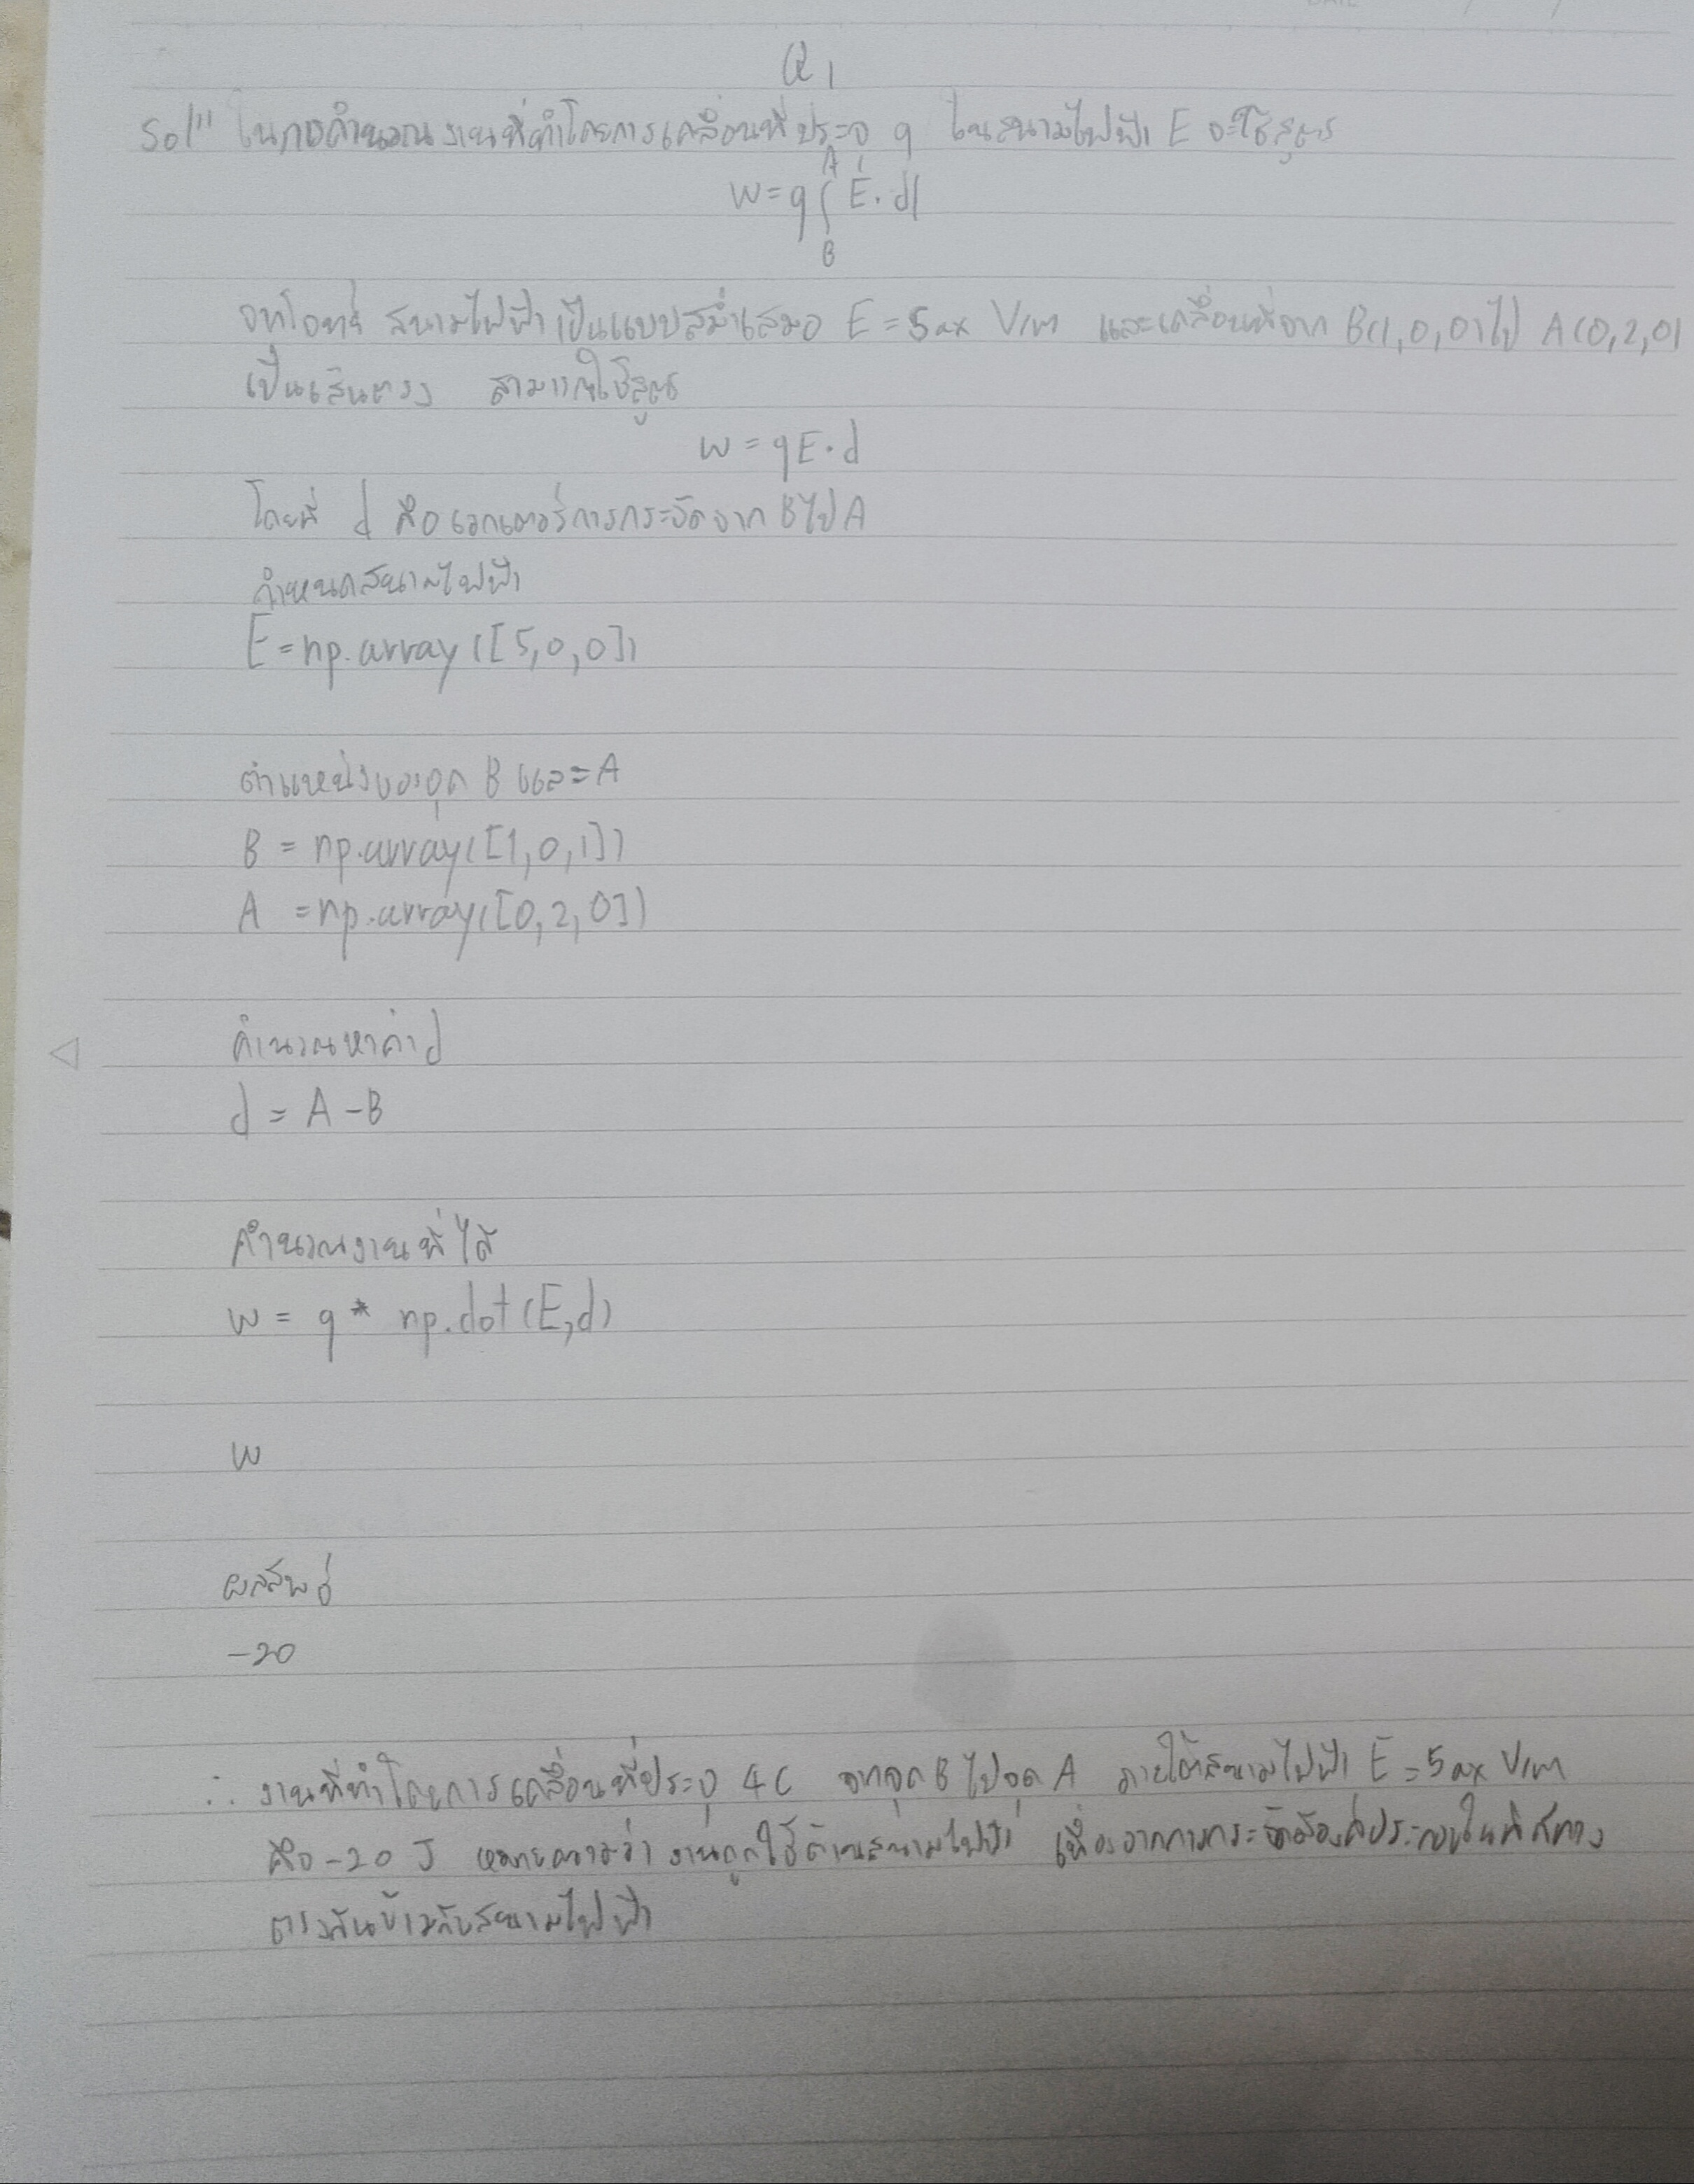 Q1
Sol" ในการคำนวณงานที่ทำโดยการเคลื่อนที่ประจุ q ในสนามไฟฟ้า E จะใช้สูตร
A
W = q ∫ E · dl
B
จากโจทย์ สนามไฟฟ้าเป็นแบบสม่ำเสมอ E = 5ax V/m และเคลื่อนที่จาก B(1,0,0) ไป A(0,2,0)
เป็นเส้นตรง สามารถใช้สูตร
W = qE·d
โดยที่ d คือเวกเตอร์การกระจัดจาก B ไป A
กำหนดสนามไฟฟ้า
E = np.array([5,0,0])
ตำแหน่งของจุด B และ A
B = np.array([1,0,1])
A = np.array([0,2,0])
คำนวณหาค่า d
d = A - B
คำนวณงานที่ได้
W = q * np.dot(E,d)
W
ผลลัพธ์
-20
∴ งานที่ทำโดยการเคลื่อนที่ประจุ 4C จากจุด B ไปจุด A ภายใต้สนามไฟฟ้า E = 5ax V/m
คือ -20 J หมายความว่า งานถูกใช้ต้านสนามไฟฟ้า เนื่องจากการกระจัดมีองค์ประกอบในทิศทาง
ตรงกันข้ามกับสนามไฟฟ้า